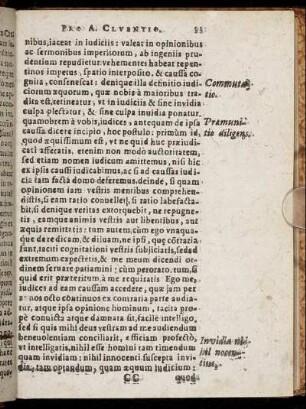 PRO A. CLVENTIO. 
nibus, iaceat in iudiciis: valeat in opinionibus
ac sermonibus imperitorum, ab ingeniis pru-
dentium repudietur: vehementes habeat repen-
tinos impetus, spatio interposito, & caussa co-
gnita, consenescat: denique illa definitio iudi-
ciorum æquorum, quæ nobis à maioribus tra-
dita est, retineatur, vt in iudiciis & sine inuidia
culpa plectatur, & sine culpa inuidia ponatur.
quamobrem à vobis, iudices, antequam de ipsa
caussa dicere incipio, hoc postulo: primùm id,
quod æquissimum est, vt ne quid huc præiudi-
cati afferatis. etenim non modo auctoritatem,
sed etiam nomen iudicum amittemus, nisi hîc
ex ipsis caussis iudicabimus, ac si ad caussas iudi-
cia iam facta domo deferemus. deinde, si quam
opinionem iam vestris mentibus comprehen-
distis, si eam ratio conuellet, si ratio labefacta-
bit, si denique veritas extorquebit, ne repugne-
tis, eamque animis vestris aut libentibus, aut
æquis remittatis: tum autem, cùm ego vnaqua-
que de re dicam, & diluam, ne ipsi, quę cõtraria
sunt, taciti cogitationi vestræ subiiciatis, sed ad
extremum expectetis, & me meum dicendi or-
dinem seruare patiamini: cùm perorarò. tum, si
quid erit præteritum, à me requiratis. Ego me,
iudices ad eam caussam accedere, quæ iam per
annos octo continuos ex contraria parte audia-
tur, atque ipsa opinione hominum, tacita pro-
pè conuicta atque damnata sit, facilè intelligo,
sed si quis mihi deus vestram ad me audiendum
beneuolentiam conciliarit, efficiam profectò,
vt intelligatis, nihil esse homini tam timendum
quam inuidiam: nihil innocenti suscepta inui-
dia, tam optandum, quam æquum iudicium:
CC quod
Commuta-
tio.
Præmuni-
tio diligens.
Inuidia ni-
hil nocen-
tius.